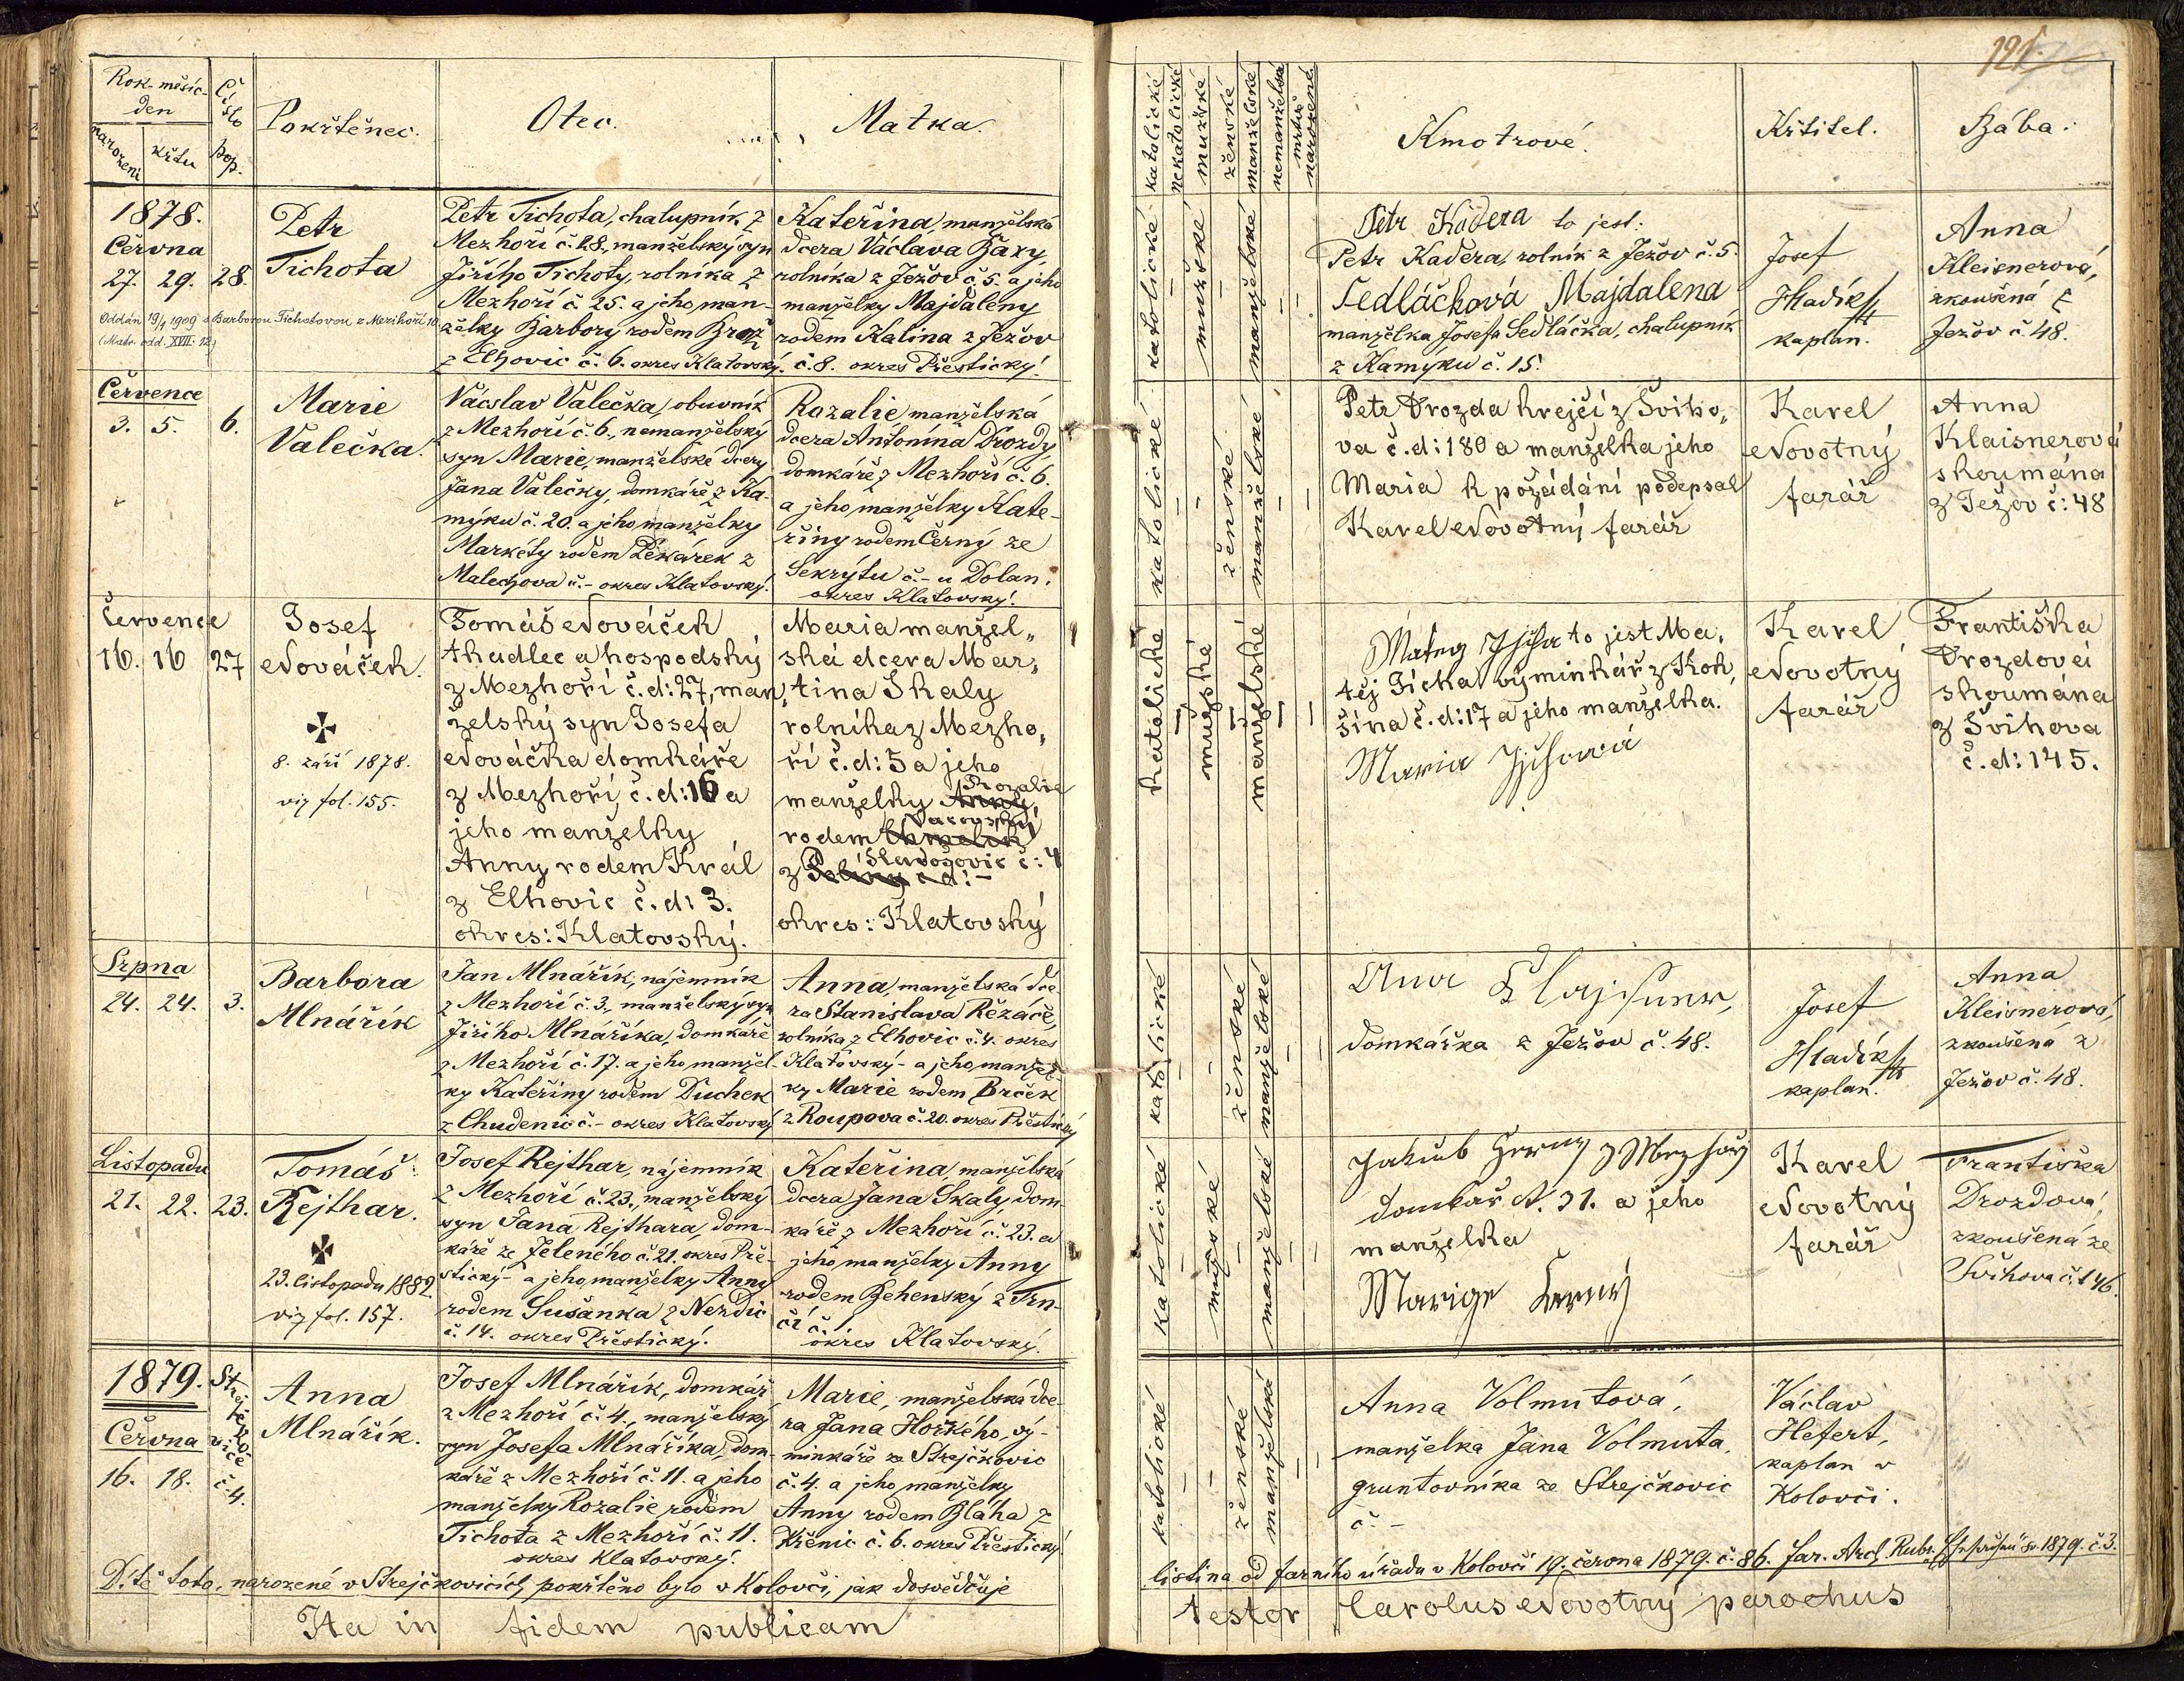 121.
Rok-měsíc-
den
narození
křtu
Číslo
pop.
Pokřtěnec.
Otec.
Matka.
katolické
nekatolické
mužské
ženské
manželské
nemanželské
mrtvě
narozené.
Kmotrové.
Křtitel.
Bába.
1878.
Června
27. 29. 28.
Oddán 19/1 1909 s Barborou Tichotovou z Mezihoří 10
(Matr. odd. XVII. 12)
Petr
Tichota
Petr Tichota, chalupník z
Mezhoří č. 28, manželský syn
Jiřího Tichoty, rolníka z
Mezhoří č 25. a jeho man-
želky Barbory rodem Brož
z Elhovic č. 6. okres Klatovský.
Kateřina, manželská
dcera Václava Baxy,
rolníka z Ježov č. 5. a jeho
manželky Majdaleny
rodem Kalina z Ježov
č. 8. okres Přestický.
katolické
mužské
manželské
Petr Kadera to jest:
Petr Kadera, rolník z Ježov č. 5.
Sedláčková Majdalena
manželka Josefa Sedláčka, chalupník
z Kamýku č. 15.
Josef
Hladík
kaplan.
Anna
Kleisnerová,
zkoušená z
Ježov č. 48.
Července
3. 5. 6.
Marie
Valečka.
Václav Valečka, obuvník
z Mezhoří č. 6., nemanželský
syn Marie, manželské dcery
Jana Valečky, domkáře z Ka-
mýku č. 20. a jeho manželky
Markéty rodem Pekárek z
Malechova č. - okres Klatovský.
Rozalie, manželská
dcera Antonína Drozdy
domkáře z Mezhoří č. 6.
a jeho manželky Kate-
řiny rodem Černý ze
Sekrýtu č. - u Dolan.
okres Klatovský.
katolické
ženské
manželské
Petr Drozda krejčí z Šviho,
va č. d: 180 a manželka jeho
Maria k požádání podepsal
Karel Novotný farář
Karel
Novotný
farář
Anna
Klaisnerová
skoumána
z Ježov č: 48
Července
16. 16 27
Josef
Nováček.
8. září 1878.
viz fol. 155.
Tomáš Nováček
tkadlec a hospodský
z Mezhoří č. d: 27, man,
želský syn Josefa
Nováčka domkáře
z Mezhoří č. d: 16 a
jeho manželky
Anny rodem Král
z Elhovic č. d: 3.
okres: Klatovský.
Maria manžel,
ská dcera Mar,
tina Skaly
rolníka z Mezho,
ří č. d: 5 a jeho
Rozalie
manželky Anny,
rodem
č: 4
z
okres: Klatovský
katolické
mužské
manželské
to jest Ma,
těj Jícha výminkář z Kok,
šína č. d: 17 a jeho manželka.
Maria
Karel
Novotný
farář
Františka
Drozdová
skoumána
z Švihova
č. d: 145.
Srpna
24. 24. 3.
Barbora
Mlnářík
Jan Mlnářík, nájemník
z Mezhoří č. 3., manželský syn
Jiřího Mlnáříka, domkáře
z Mezhoří č. 17. a jeho manžel-
ky Kateřiny rodem Duchek
z Chudenic č. - okres Klatovský
Anna, manželská dce-
ra Stanislava Řežáče,
rolníka z Elhovic č. 4. okres
Klatovský - a jeho manžel-
ky Marie rodem Brček
z Roupova č. 20. okres Přestický
katolické
ženské
manželské
Anna
domkářka z Ježov č. 48.
Josef
Hladík
kaplan.
Anna
Kleisnerová,
zkoušená z
Ježov č. 48.
Listopadu
21. 22. 23.
Tomáš
Rejthar.
23. listopadu 1882.
viz fol. 157.
Josef Rejthar, nájemník
z Mezhoří č. 23., manželský
syn Jana Rejthara, dom-
káře ze Jeleného č. 21. okres Pře-
stický - a jeho manželky Anny
rodem Sušanka z Nezdic
č. 14. okres Přestický.
Kateřina manželská
dcera Jana Skaly, dom-
káře z Mezhoří č. 23. a
jeho manželky Anny
rodem Behenský z Trn-
čí č. 1.
okres Klatovský.
katolické
mužské
manželské
Jakub Černy z Mezhoří
domkář N. 31. a jeho
manželka
Marige Černý
Karel
Novotný
farář
Františka
Drozdová,
zkoušená ze
Švihova č. 146.
1879.
Června
16. 18.
Strejčkovice
č. 4.
Anna
Mlnářík.
Josef Mlnářík, domkář
z Mezhoří č. 4., manželský
syn Josefa Mlnáříka, dom-
káře z Mezhoří č. 11. a jeho
manželky Rozalie rodem
Tichota z Mezhoří č. 11.
okres Klatovský.
Marie, manželská dce-
ra Jana Horkého, vý-
minkáře ze Strejčkovic
č. 4. a jeho manželky
Anny rodem Bláha z
Křenic č. 6. okres Přestický.
katolické
ženské
manželské
Anna Volmutová,
manželka Jana Volmuta,
gruntovníka ze Strejčkovic
č -
Václav
Hefert,
kaplan v
Kolovči.
Dítě toto, narozené v Strejčkovicích, pokřtěno bylo v Kolovči, jak dosvědčuje
listina od farního úřadu v Kolovči 19. června 1879. č. 86. far. Arch. Rubr. 1879. č. 3.
Ita in fidem publicam
testor Carolus Novotný parochus